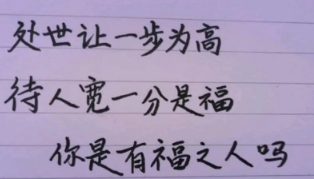 处世让一步为高
待人宽一分是福
你是有福之人吗